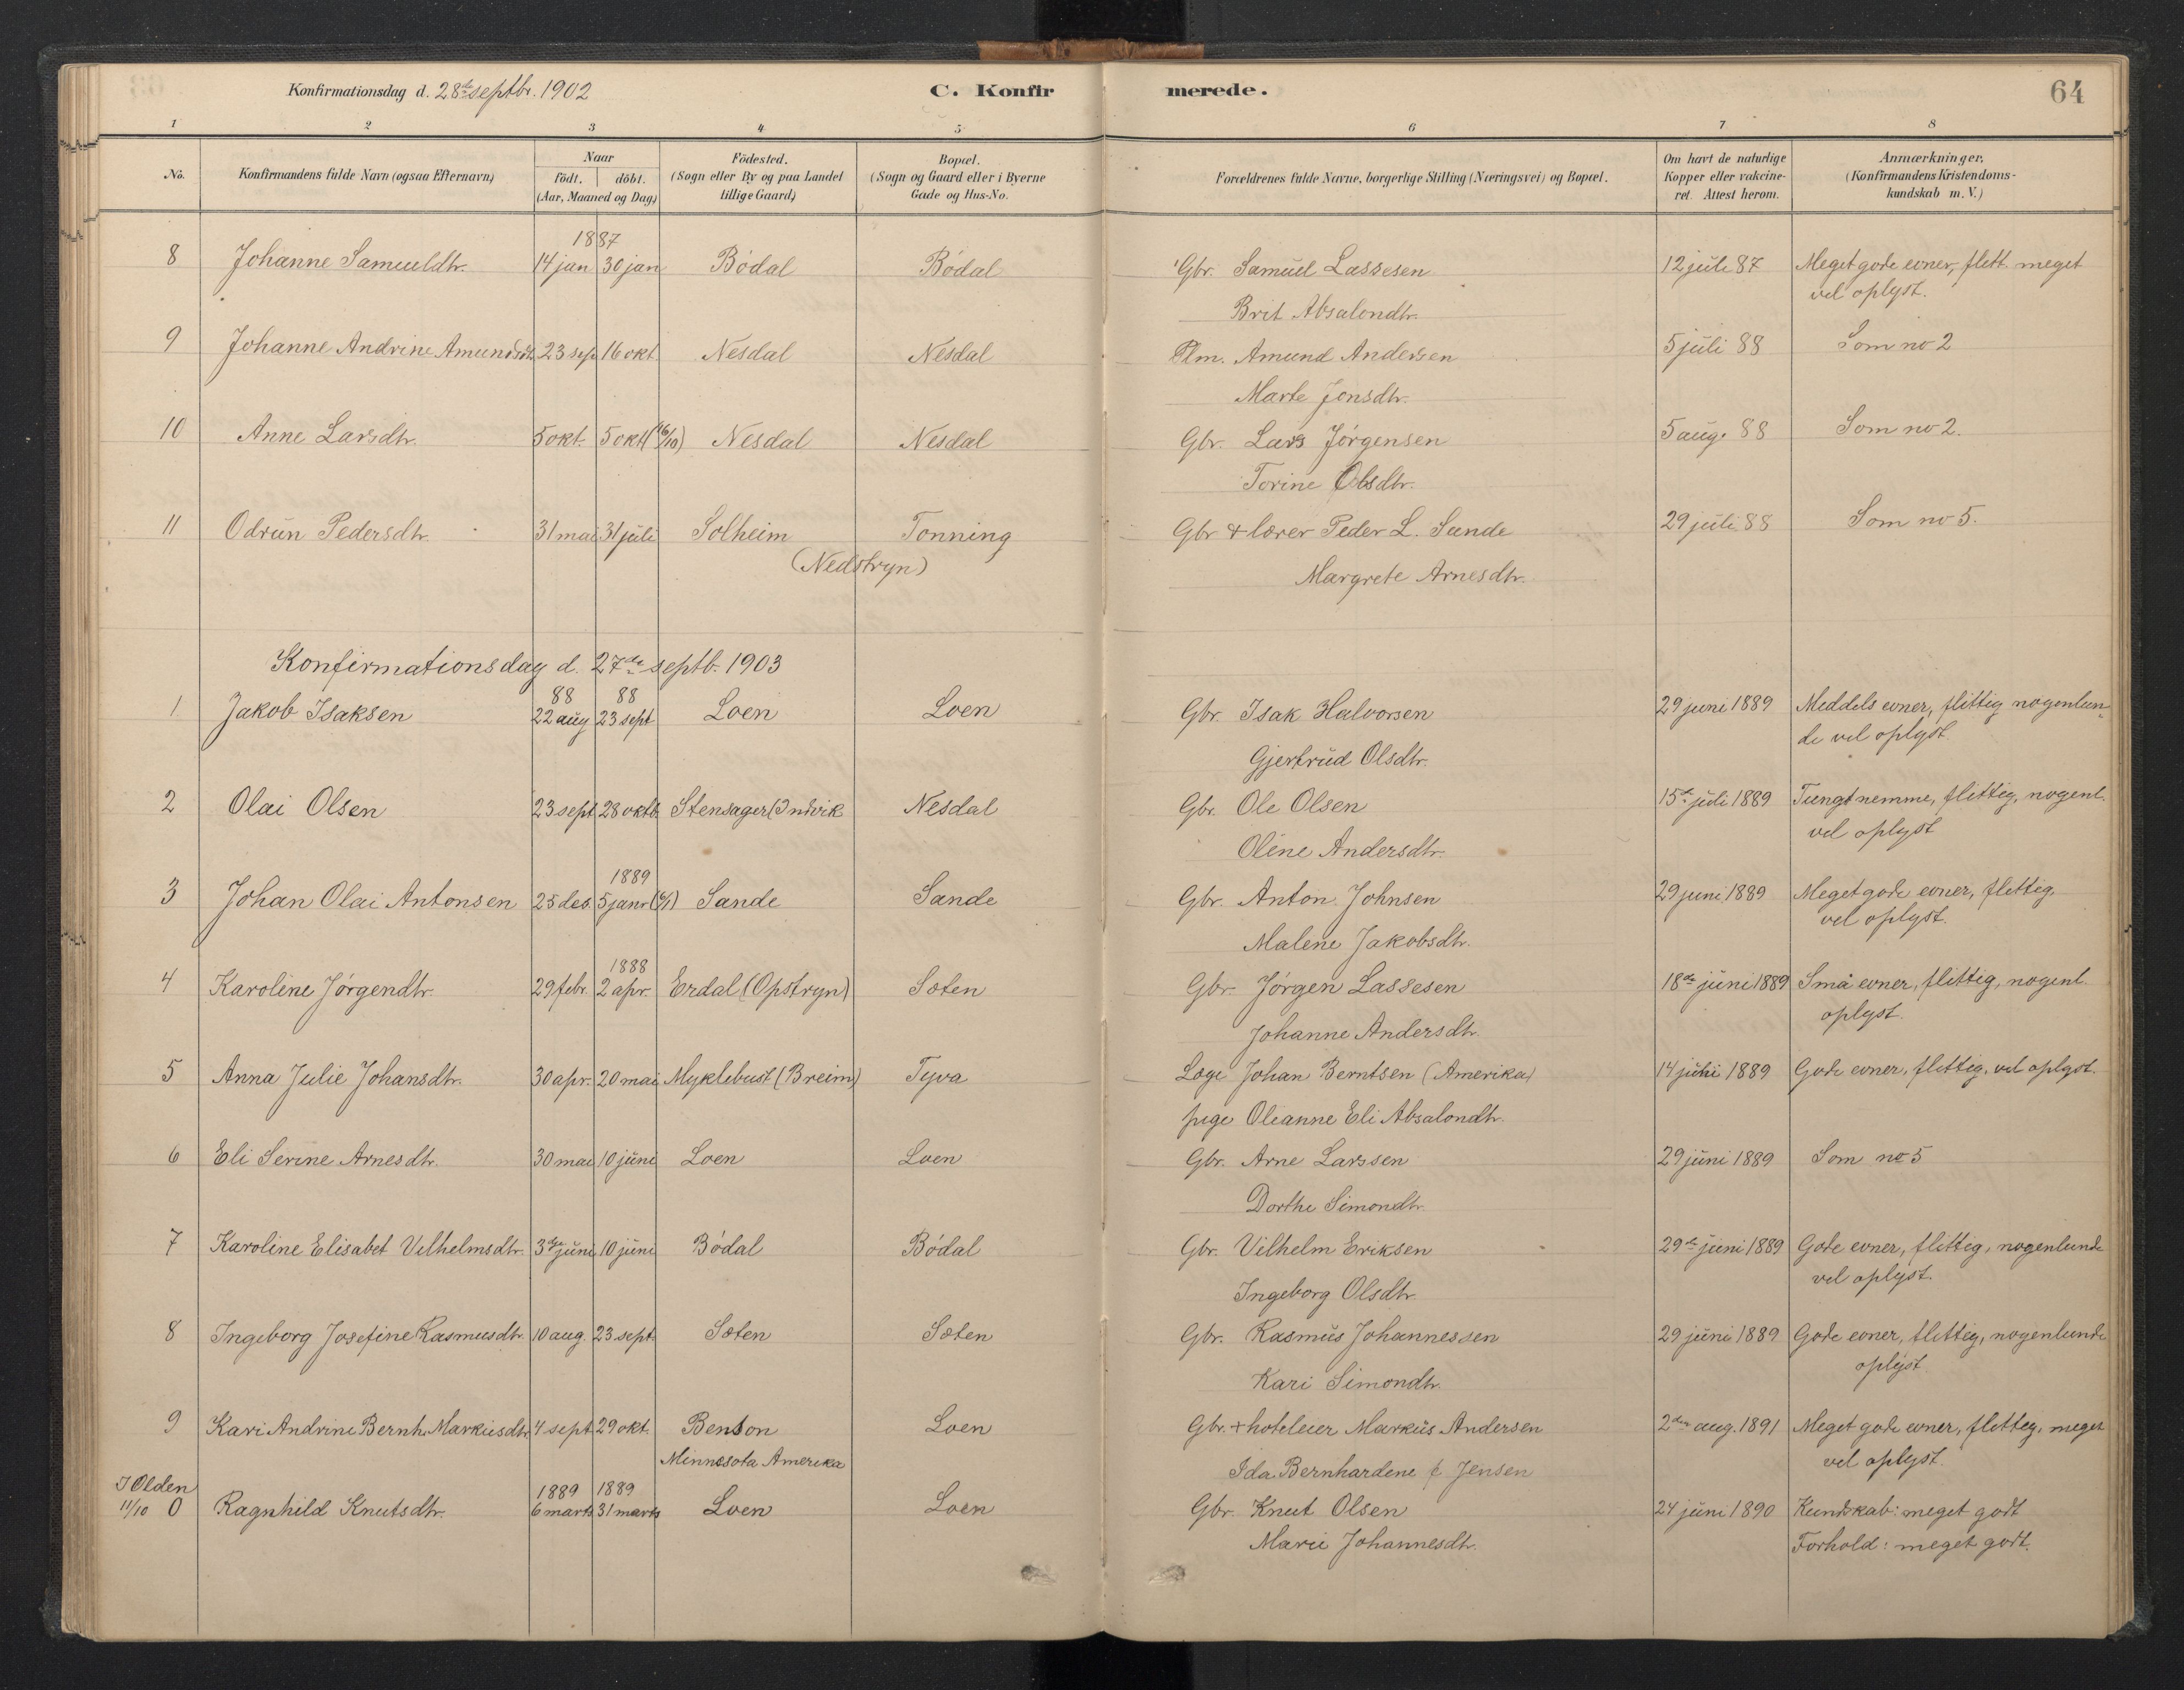 Konfirmationsdag d. 28de septbr. 1902 C. Konfirmerede. 64
1 2 3 4 5 6 7 8
No. Konfirmandens fulde Navn (ogsaa Efternavn) Naar födt. döbt. (Aar, Maaned og Dag) Födested. (Sogn eller By og paa Landet tillige Gaard) Bopæl. (Sogn og Gaard eller i Byerne Gade og Hus-No. Forældrenes fulde Navne, borgerlige Stilling (Næringsvei) og Bopæl. Om havt de naturlige Kopper eller vakcineret. Attest herom. Anmærkninger. (Konfirmandens Kristendomskundskab m. V.)
1887
8 Johanne Samueldtr. 14 jan 30 jan Bödal Bödal Gbr. Samuel Lassesen 12 juli 87 Meget gode evner, flitt. meget
Brit Absalondtr. vel oplyst.
9 Johanne Andrine Amundsdtr. 23 sep 16 okt Nesdal Nesdal Plm. Amund Andersen 5 juli 88 Som no 2
Marte Jonsdtr.
10 Anne Larsdtr. 5 okt. 5 okt (16/10) Nesdal Nesdal Gbr. Lars Jörgensen 5 aug. 88 Som no 2.
Torine Olsdtr.
11 Odrun Pedersdtr. 31 mai 31 juli Solheim Tonning Gbr & lærer Peder L. Sande 29 juli 88 Som no 5.
(Nedstryn) Margrete Arnesdtr.
Konfirmationsdag d. 27de septb. 1903
88 88
1 Jakob Isaksen 22 aug 23 sept Loen Loen Gbr. Isak Halvorsen 29 juni 1889 Meddels evner, flittig nogenlun-
Gjertrud Olsdtr. de vel oplyst.
2 Olai Olsen 23 sept 28 oktb Stensager (Indvik Nesdal Gbr. Ole Olsen 15de juli 1889 Tungt nemme, flittig, nogenl.
Oline Andersdtr. vel oplyst
1889
3 Johan Olai Antonsen 25 des. 5 janr (6/1) Sande Sande Gbr. Anton Johnsen 29 juni 1889 Meget gode evner, flittig,
Malene Jakobsdtr. vel oplyst.
1888
4 Karoline Jörgendtr. 29 febr. 2 apr. Erdal (Opstryn) Sæten Gbr. Jörgen Lassesen 18de juni 1889 Små evner, flittig, nogenl.
Johanne Andersdtr. oplyst.
5 Anna Julie Johansdtr. 30 apr. 20 mai Myklebust (Breim) Tyva Læge Johan Berntsen (Amerika) 14 juni 1889 Gode evner, flittig, vel oplyst.
pige Olianne Eli Absalondtr.
6 Eli Serine Arnesdtr. 30 mai 10 juni Loen Loen Gbr. Arne Larssen 29 juni 1889 Som no 5
Dorthe Simondtr.
7 Karoline Elisabet Vilhelmsdtr. 3dje juni 10 juni Bödal Bödal Gbr. Vilhelm Eriksen 29de juni 1889 Gode evner, flittig, nogenlunde
Ingeborg Olsdtr. vel oplyst.
8 Ingeborg Josefine Rasmusdtr. 10 aug. 23 sept. Sæten Sæten Gbr. Rasmus Johannessen 29 juni 1889 Gode evner, flittig, nogenlunde
Kari Simondtr. oplyst.
9 Kari Andrine Bernh. Markusdtr. 4 sept 29 okt. Benson Loen Gbr. + hoteleier Markus Andersen 2den aug. 1891 Meget gode evner, flittig, meget
Minnesota Amerika Ida Bernhardene f. Jensen vel oplyst.
I Olden 1889 1889
11/10 0 Ragnhild Knutsdtr. 6 marts 31 marts Loen Loen Gbr. Knut Olsen 24 juni 1890 Kundskab: meget godt
Marie Johannesdtr. Forhold: meget godt.